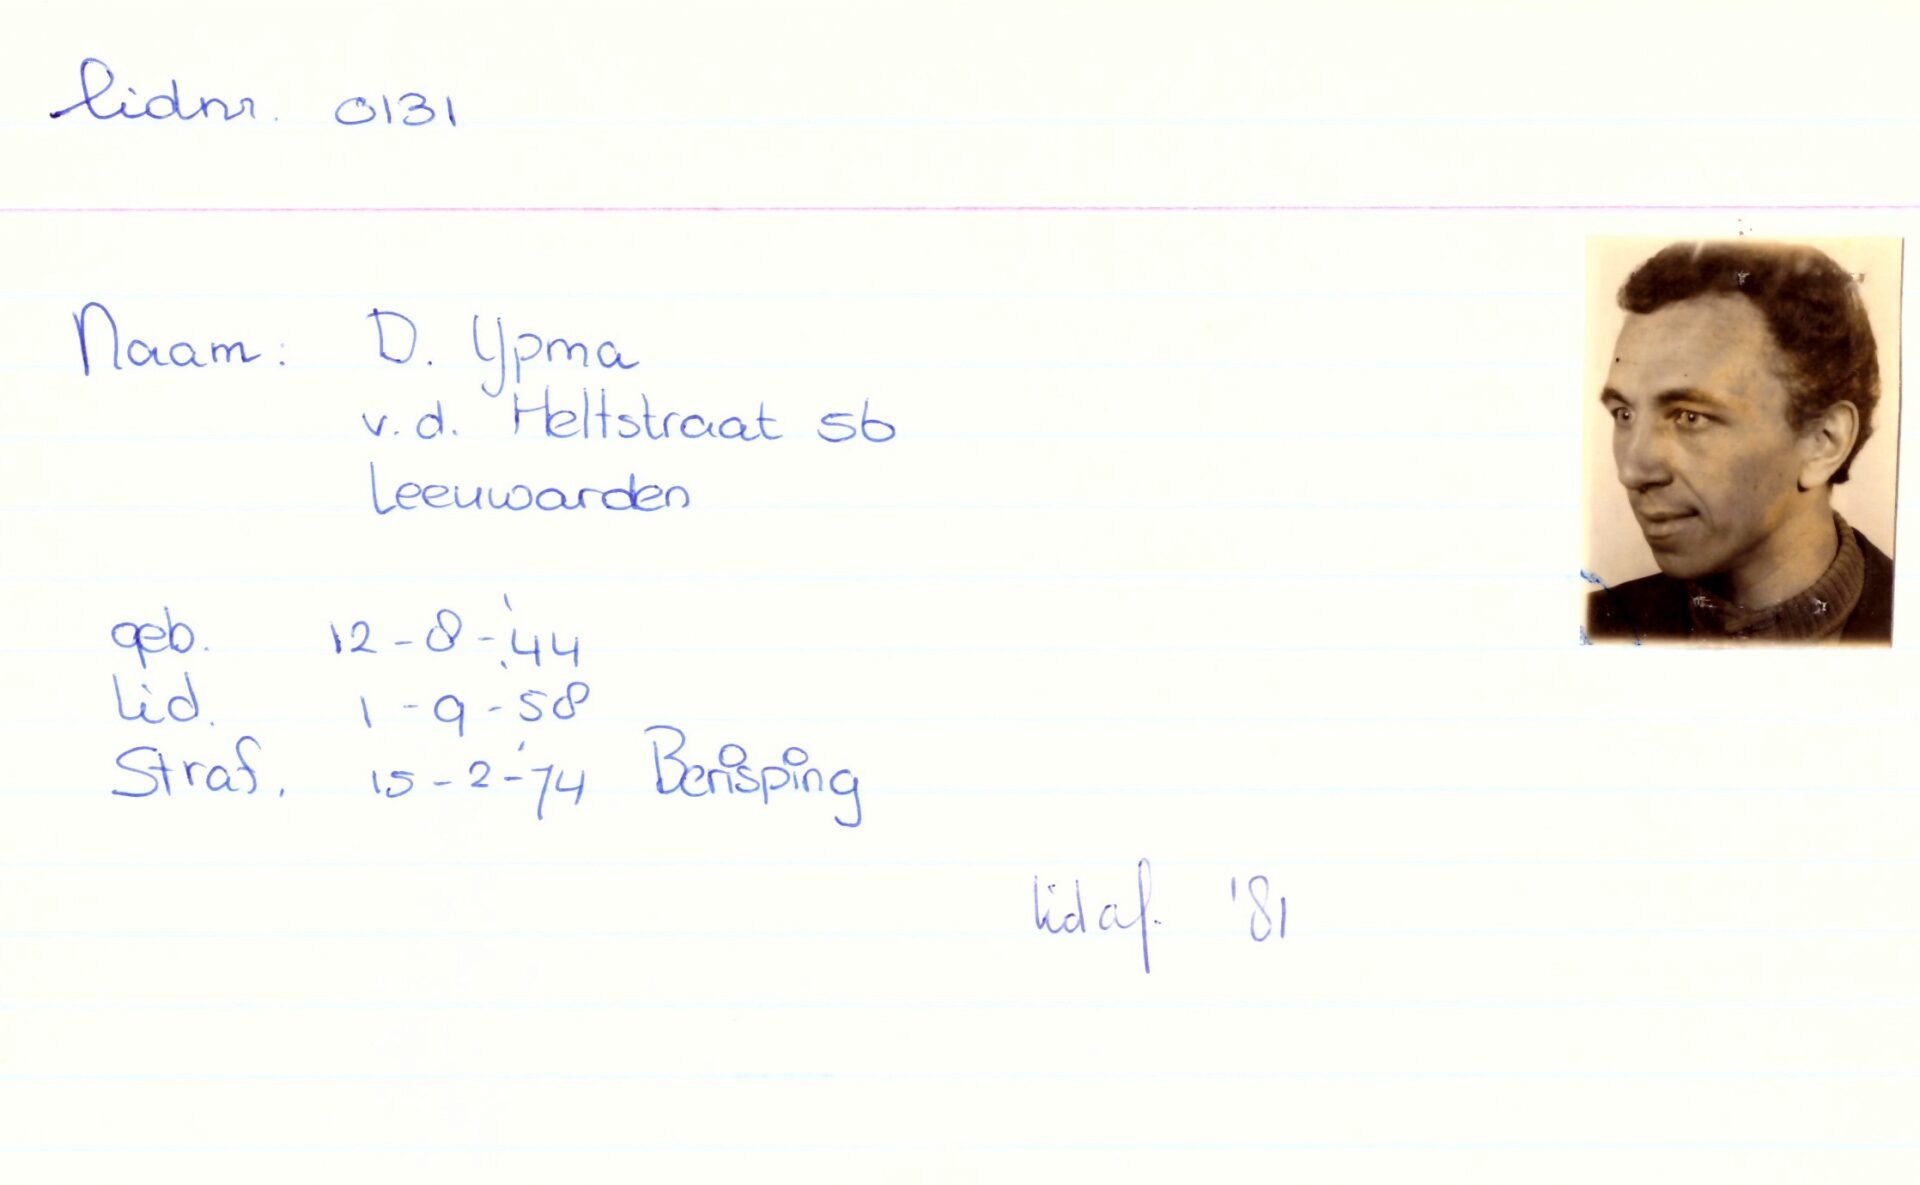 lidnr. 0131
Naam: D. Ypma
v.d. Heltstraat 56
Leeuwarden
geb. 12-8-'44
Lid. 1-9-58
Straf. 15-2-'74 Berisping
lid af. '81